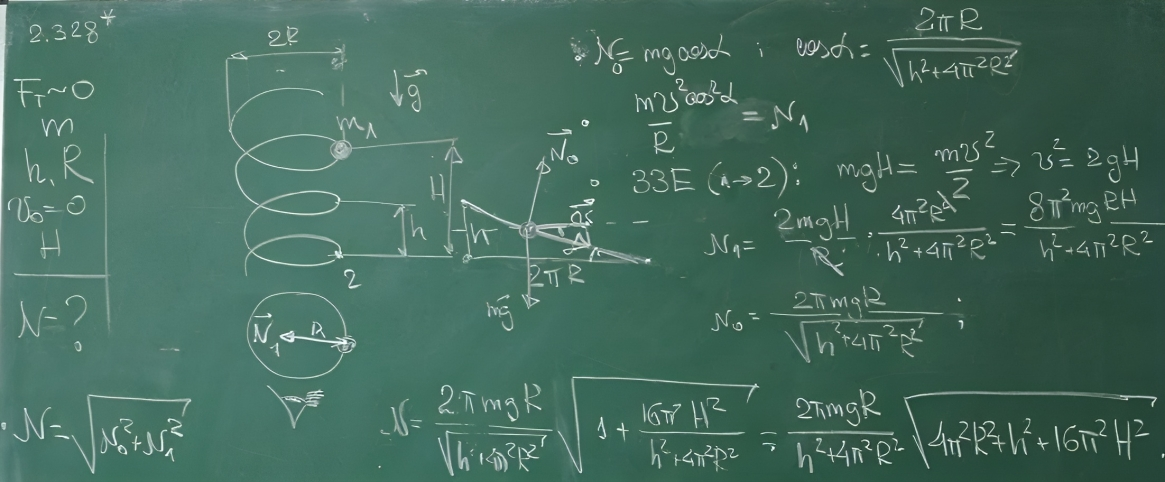 2.328*
F_T ~ 0
m
h, R
v₀ = 0
H
N = ?
2R
m 1
g⃗
H
h
2
N⃗₁
R
N⃗₀
h
2πR
mg⃗
N₀ = mg cosα ; cosα = 2πR / √(h² + 4π²R²)
mv²cos²α / R = N₁
ЗЗЕ (1→2): mgH = mv²/2 => v² = 2gH
N₁ = 2mgH/R · 4π²R²/(h² + 4π²R²) = 8π²mgRH/(h² + 4π²R²)
N₀ = 2πmgR / √(h² + 4π²R²) ;
N = √(N₀² + N₁²)
N = 2πmgR/√(h² + 4π²R²) √(1 + 16π²H²/(h² + 4π²R²)) = 2πmgR/(h² + 4π²R²) √(4π²R² + h² + 16π²H²).